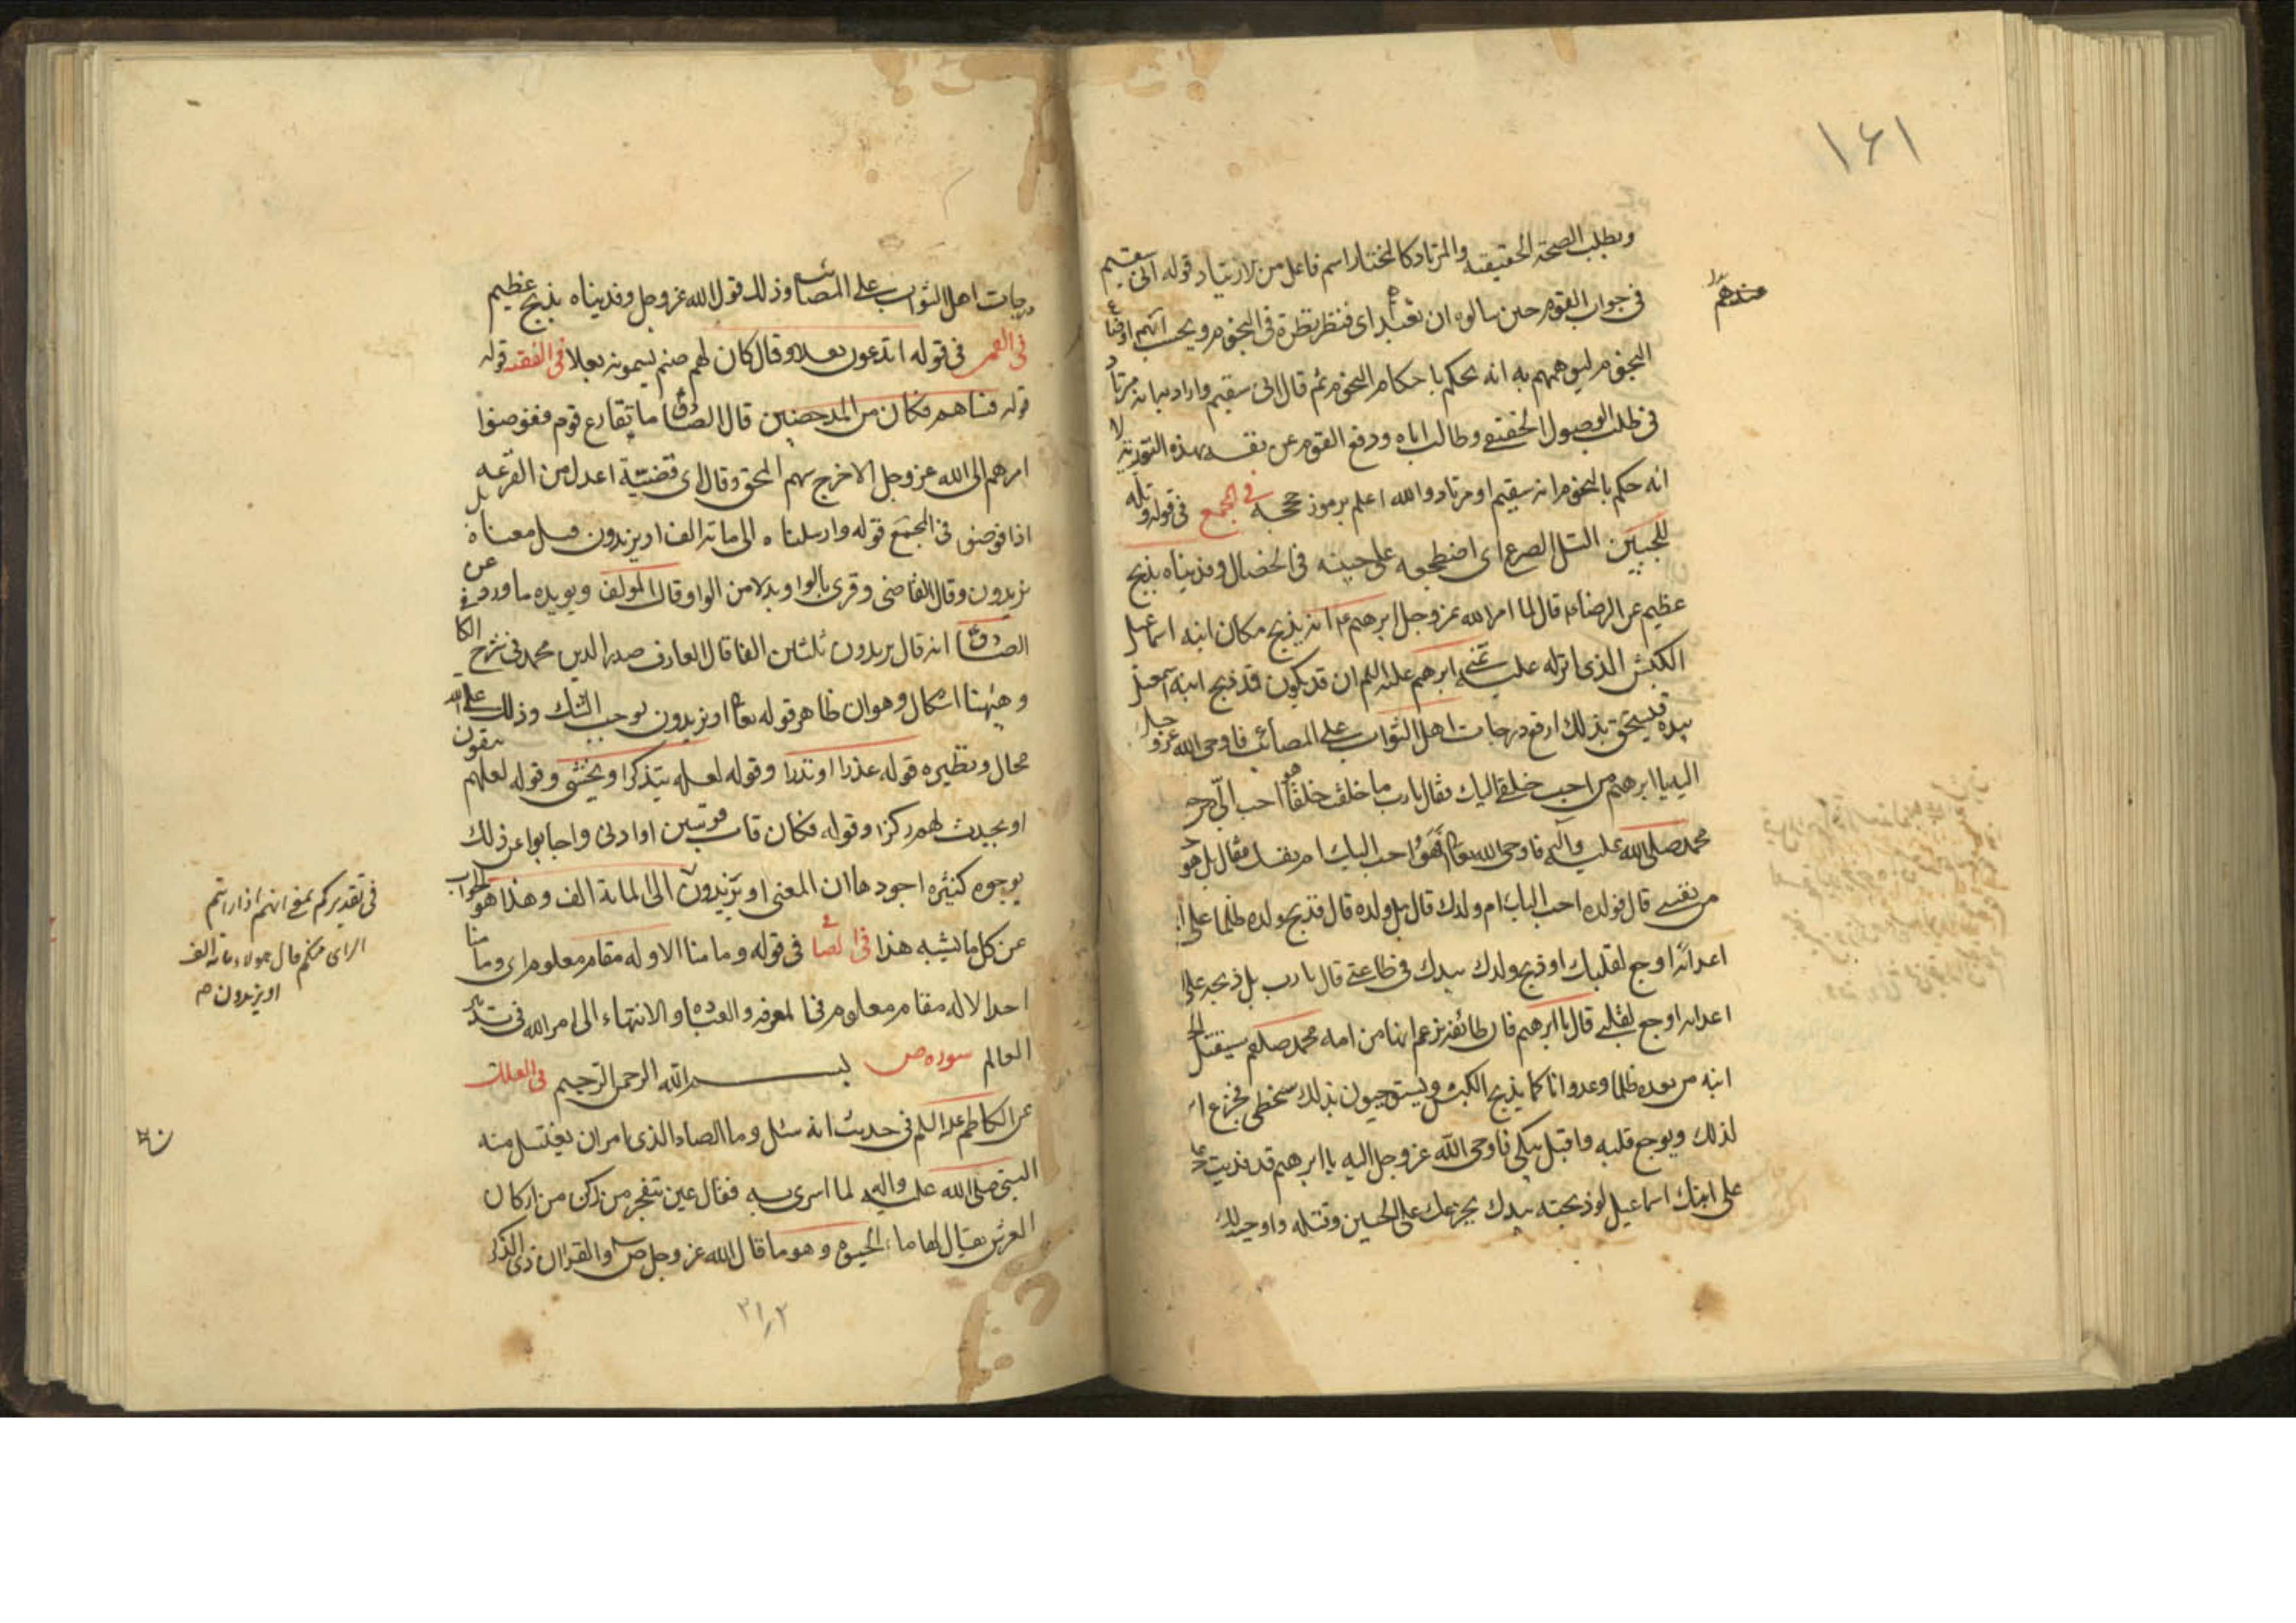 ١٦١
ويطلب الصحة الحقيقية والمرتاد كالمختار اسم فاعل من الارتياد قوله انى سقيم
عندهم
فى جواب القوم حين سالوه ان تعيد اى فنظر نظرة فى النجوم ويحسب انهم اوضاع
النجوم ليوهمهم به انه يحكم باحكام النجوم ثم قال انى سقيم واراد بيانه مرتاد
فى طلب الوصول الحقيقى وطالب اياه ودفع القوم عن نفسه بهذه التورية لا
انه حكم بالنجوم انه سقيم او مرتاد والله اعلم برموز حججه فى المجمع فى قوله وتله
للجبين التل الصرع اى اضطجعه على جبينه فى الخصال وفديناه بذبح
عظيم عن الرضا ع قال لما امر الله عز وجل ابرهيم ع انه يذبح مكان ابنه اسماعيل
الكبش الذى انزله عليه تمنى ابرهيم عليه السلم ان قد يكون قد ذبح ابنه اسمعيل
بيده فيستحق بذلك ارفع درجات اهل الثواب على المصائب فاوحى الله عز وجل
اليه يا ابرهيم من احب خلقى اليك فقال يا رب ما خلقت خلقا هو احب الىّ من
محمد صلى الله عليه وآله فاوحى الله تعالى افهو احب اليك ام نفسك فقال بل هو
من نفسى قال فولده احب اليك ام ولدك قال بل ولده قال فذبح ولده ظلما على
اعدائه اوجع لقلبك او ذبح ولدك بيدك فى طاعتى قال يا رب بل ذبحه على
اعدائه اوجع لقلبى قال يا ابرهيم فان طائفة تزعم انها من امة محمد صلعم سيقتل
ابنه من بعده ظلما وعدوانا كما يذبح الكبش ويستوجبون بذلك سخطى فجزع
لذلك وتوجع قلبه واقبل يبكى فاوحى الله عز وجل اليه يا ابرهيم قد فديت
على ابنك اسماعيل لو ذبحته بيدك بجزعك على الحسين وقتله واوجبت لك
درجات اهل الثواب على المصائب وذلك قول الله عز وجل وفديناه بذبح عظيم
فى القمى فى قوله اتدعون بعلا وقال كان لهم صنم يسمونه بعلا فى الفقيه قوله
قوله فساهم فكان من المدحضين قال الصادق ما تقارع قوم ففوضوا
امرهم الى الله عز وجل الا خرج سهم المحق وقال اى قضية اعدل من القرعة
اذا فوض فى المجمع قوله وارسلناه الى مائة الف او يزيدون قيل معناه بل
يزيدون وقال القاضى وقرئ بالواو بدلا من الواو قال المولف ويويده ما ورد عن
الصادق انه قال يزيدون ثلثين الفا قال العارف صدر الدين محمد فى شرح الكافى
وهيهنا اشكال وهو ان ظاهر قوله تعالى او يزيدون يوجب الشك وذلك على الله
محال ونظيره قوله عذرا او نذرا وقوله لعله يتذكر او يخشى وقوله لعلهم يتقون
او يحدث لهم ذكرا وقوله فكان قاب قوسين او ادنى واجابوا عن ذلك
بوجوه كثيره اجودها ان المعنى او يزيدون الى المائة الف وهذا هو الجواب
فى تقديركم بمعنى انهم اذا راىهم
الراى منكم قال هولاء مائة الف
او يزيدون
عن كل ما يشبه هذا فى الصافى فى قوله وما منا الا وله مقام معلوم اى وما منا
احد الا له مقام معلوم فى المعرفة والعباده والانتهاء الى امر الله فى تدبير
العالم سوره ص بسم الله الرحمن الرحيم فى العلل
عن الكاظم عليه السلم فى حديث انه سئل وما الصاد الذى امر ان يغتسل منه
النبى صلى الله عليه واله لما اسرى به فقال عين تنفجر من ركن من اركان
العرش يقال لها ماء الحيوة وهو ما قال الله عز وجل ص والقران ذى الذكر
٣١٢